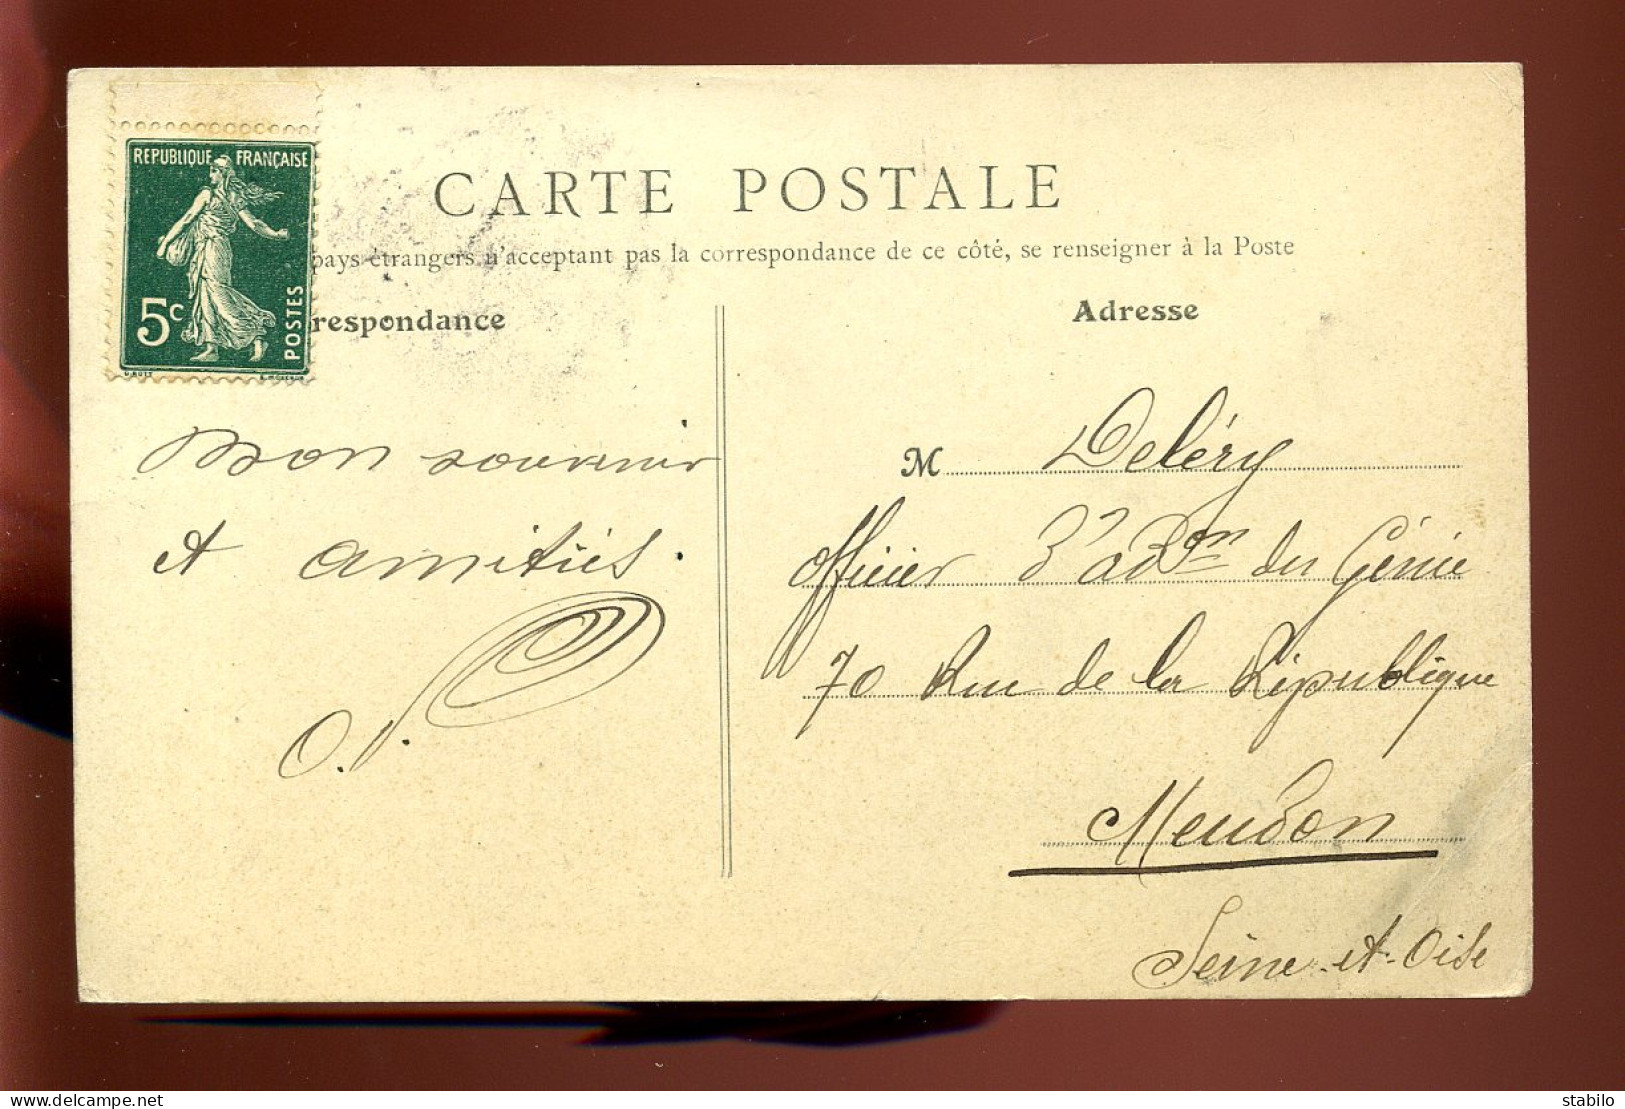 REPUBLIQUE FRANÇAISE
5c
POSTES
CARTE POSTALE
pays étrangers n'acceptant pas la correspondance de ce côté, se renseigner à la Poste
respondance
Adresse
Mon souvenir
et amitiés.
M Deléry
officier d'adon du Génie
70 Rue de la République
Meudon
Seine-et-Oise
www.delcampe.net
stabilo